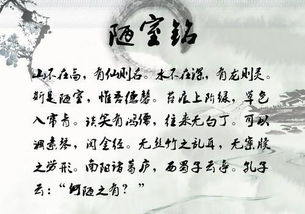 陋室铭
山不在高，有仙则名。水不在深，有龙则灵。
斯是陋室，惟吾德馨。苔痕上阶绿，草色
入帘青。谈笑有鸿儒，往来无白丁。可以
调素琴，阅金经。无丝竹之乱耳，无案牍
之劳形。南阳诸葛庐，西蜀子云亭。孔子
云：“何陋之有？”